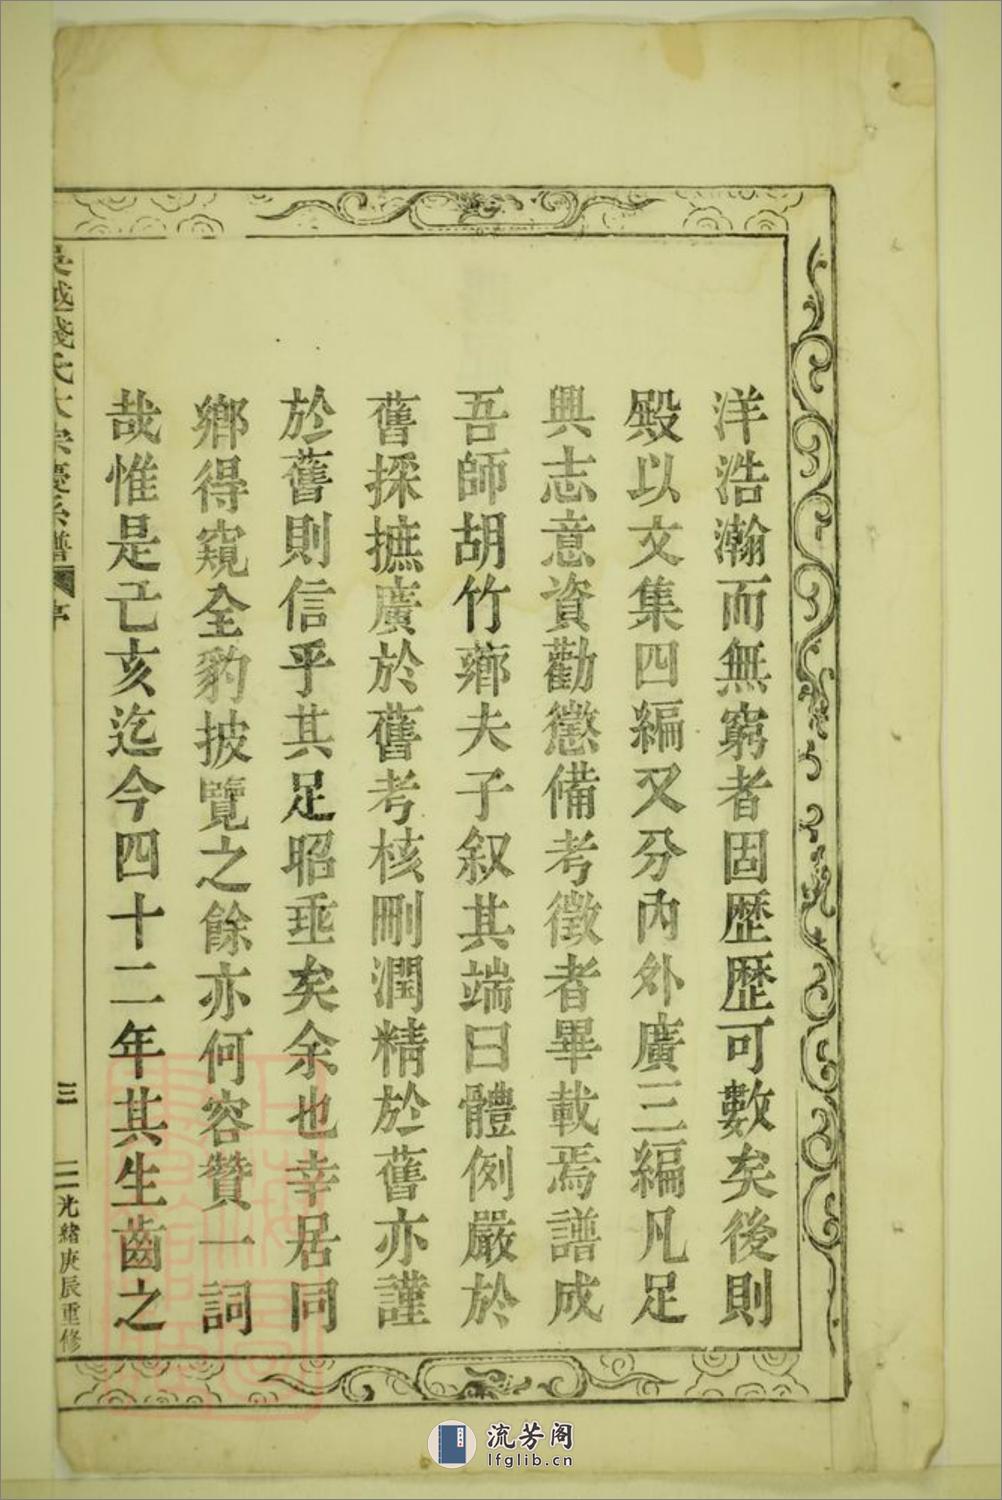 洋浩瀚而無窮者固歷歷可數矣後則
殿以文集四編又分內外廣三編凡足
興志意資勸懲備考徵者畢載焉譜成
吾師胡竹薌夫子叙其端曰體例嚴於
舊採摭廣於舊考核刪潤精於舊亦謹
於舊則信乎其足昭垂矣余也幸居同
鄉得窺全豹披覽之餘亦何容贊一詞
哉惟是己亥迄今四十二年其生齒之
吳越錢氏大宗慶系譜 序
三
光緒庚辰重修
流芳阁
lfglib.cn